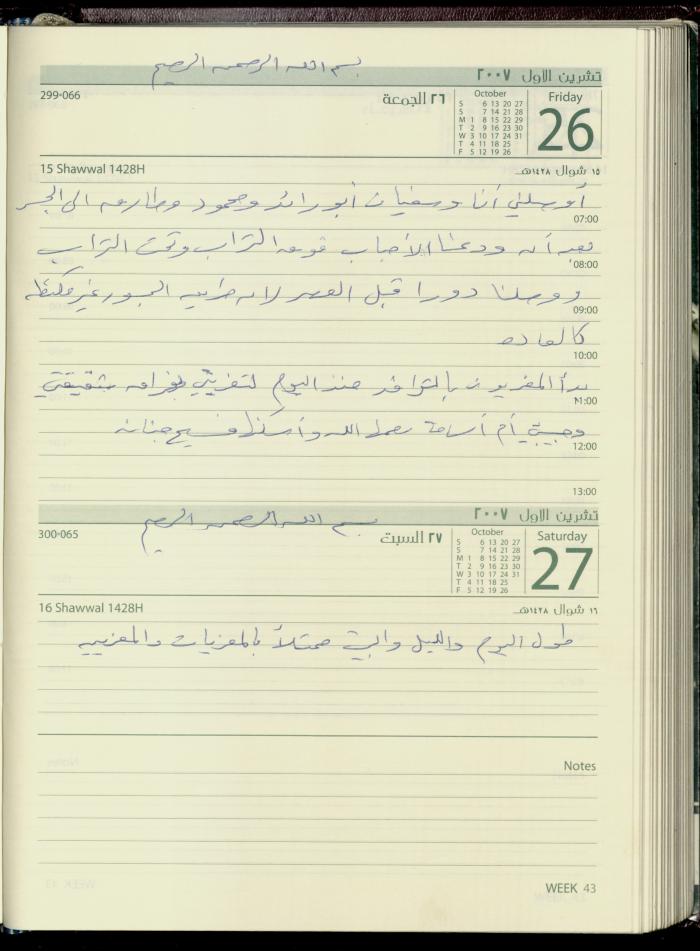 بسم الله الرحمن الرحيم
تشرين الاول ٢٠٠٧
299-066
٢٦ الجمعة
October
S 6 13 20 27
S 7 14 21 28
M 1 8 15 22 29
T 2 9 16 23 30
W 3 10 17 24 31
T 4 11 18 25
F 5 12 19 26
Friday
26
15 Shawwal 1428H
١٥ شوال ١٤٢٨هـ
أوصلني أنا وسفيان أبو رائد ومحمود وطارق الى الجسر
07:00
بعد أن ودعنا الأحباب فوق التراب وتحت التراب
08:00
ووصلنا دورا قبل العصر لان طريق الجسور غير مكتظة
09:00
كالعادة
10:00
بدأ المعزيون بالتوافد منذ اليوم لتعزيتي بفراق شقيقتي
11:00
وحبيبتي أم أسامة رحمها الله وأسكنها فسيح جنانه
12:00
13:00
بسم الله الرحمن الرحيم
تشرين الاول ٢٠٠٧
300-065
٢٧ السبت
October
S 6 13 20 27
S 7 14 21 28
M 1 8 15 22 29
T 2 9 16 23 30
W 3 10 17 24 31
T 4 11 18 25
F 5 12 19 26
Saturday
27
16 Shawwal 1428H
١٦ شوال ١٤٢٨هـ
طول اليوم والليل والبيت ممتلأ بالمعزيات والمعزيين
Notes
WEEK 43